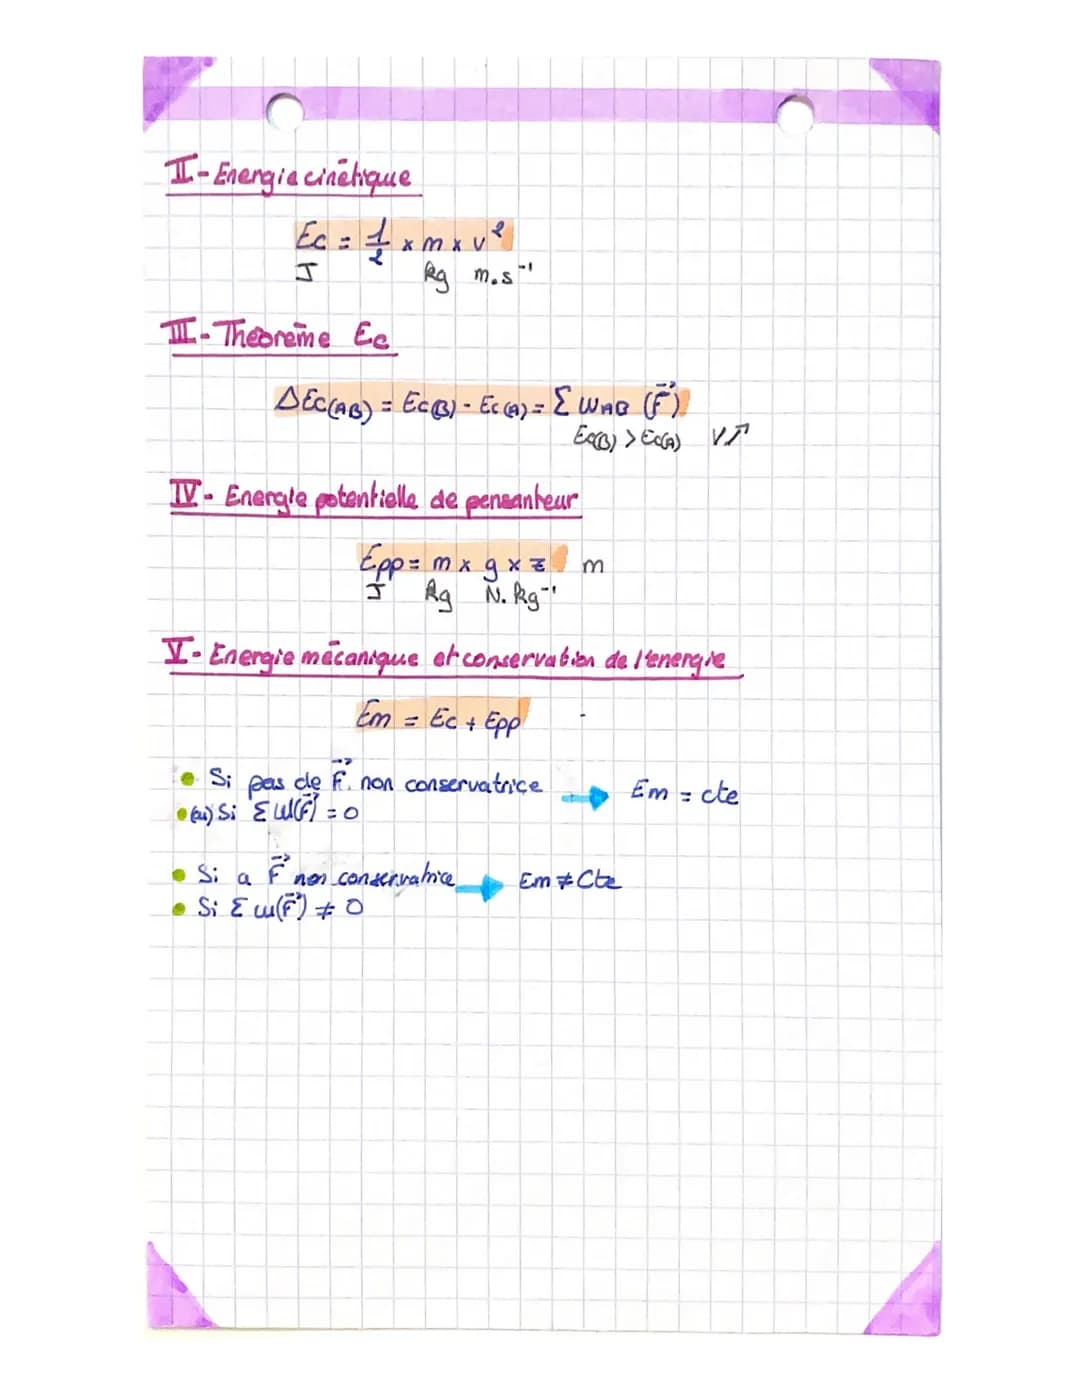 II - Energie cinétique
Ec = 1/2 x m x v²
J kg m.s⁻¹
III - Théorème Ec
ΔEc(AB) = Ec(B) - Ec(A) = Σ WAB (F⃗)
Ec(B) > Ec(A) V↗
IV - Energie potentielle de pensanteur
Epp = m x g x z m
J kg N.kg⁻¹
V - Energie mécanique et conservation de l'énergie
Em = Ec + Epp
• Si pas de F⃗. non conservatrice → Em = cte
• (ou) Si Σ W(F⃗) = 0
• Si a F⃗ non conservatrice → Em ≠ Cte
• Si Σ w(F⃗) ≠ 0